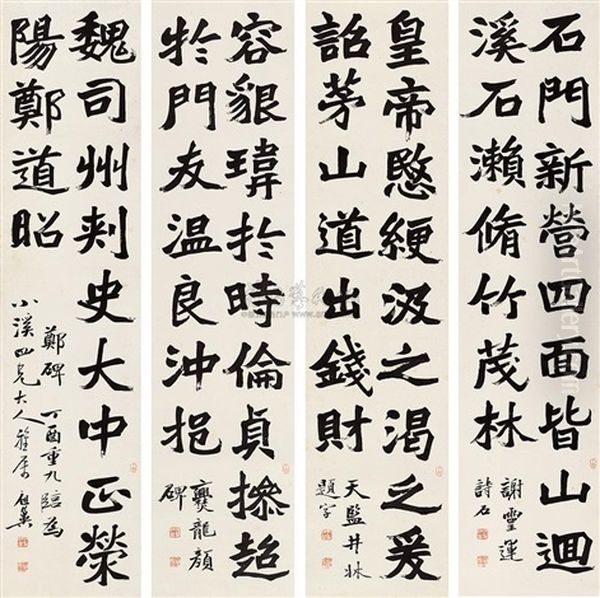 石門新營四面皆山迴
溪石瀨脩竹茂林
謝靈運
詩石
皇帝愍綆汲之渴之爰
詔茅山道出錢財
天監井牀
題字
容貌瑋於時倫貞操超
於門友温良沖挹
爨龍顏
碑
魏司州刺史大中正滎
陽鄭道昭
鄭碑 丁酉重九臨為
小溪四兄大人雅屬 祖